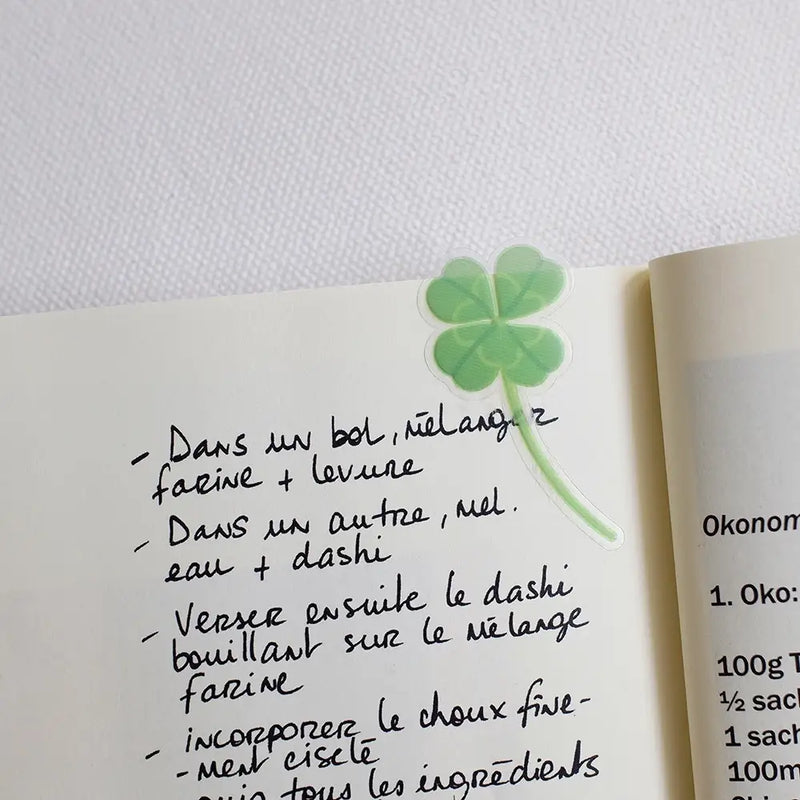 - Dans un bol, mélanger
farine + levure
- Dans un autre, mel.
eau + dashi
- Verser ensuite le dashi
bouillant sur le mélange
farine
- incorporer le choux fine-
- ment ciselé
puis tous les ingrédients
Okonom
1. Oko:
100g T
½ sach
1 sach
100m